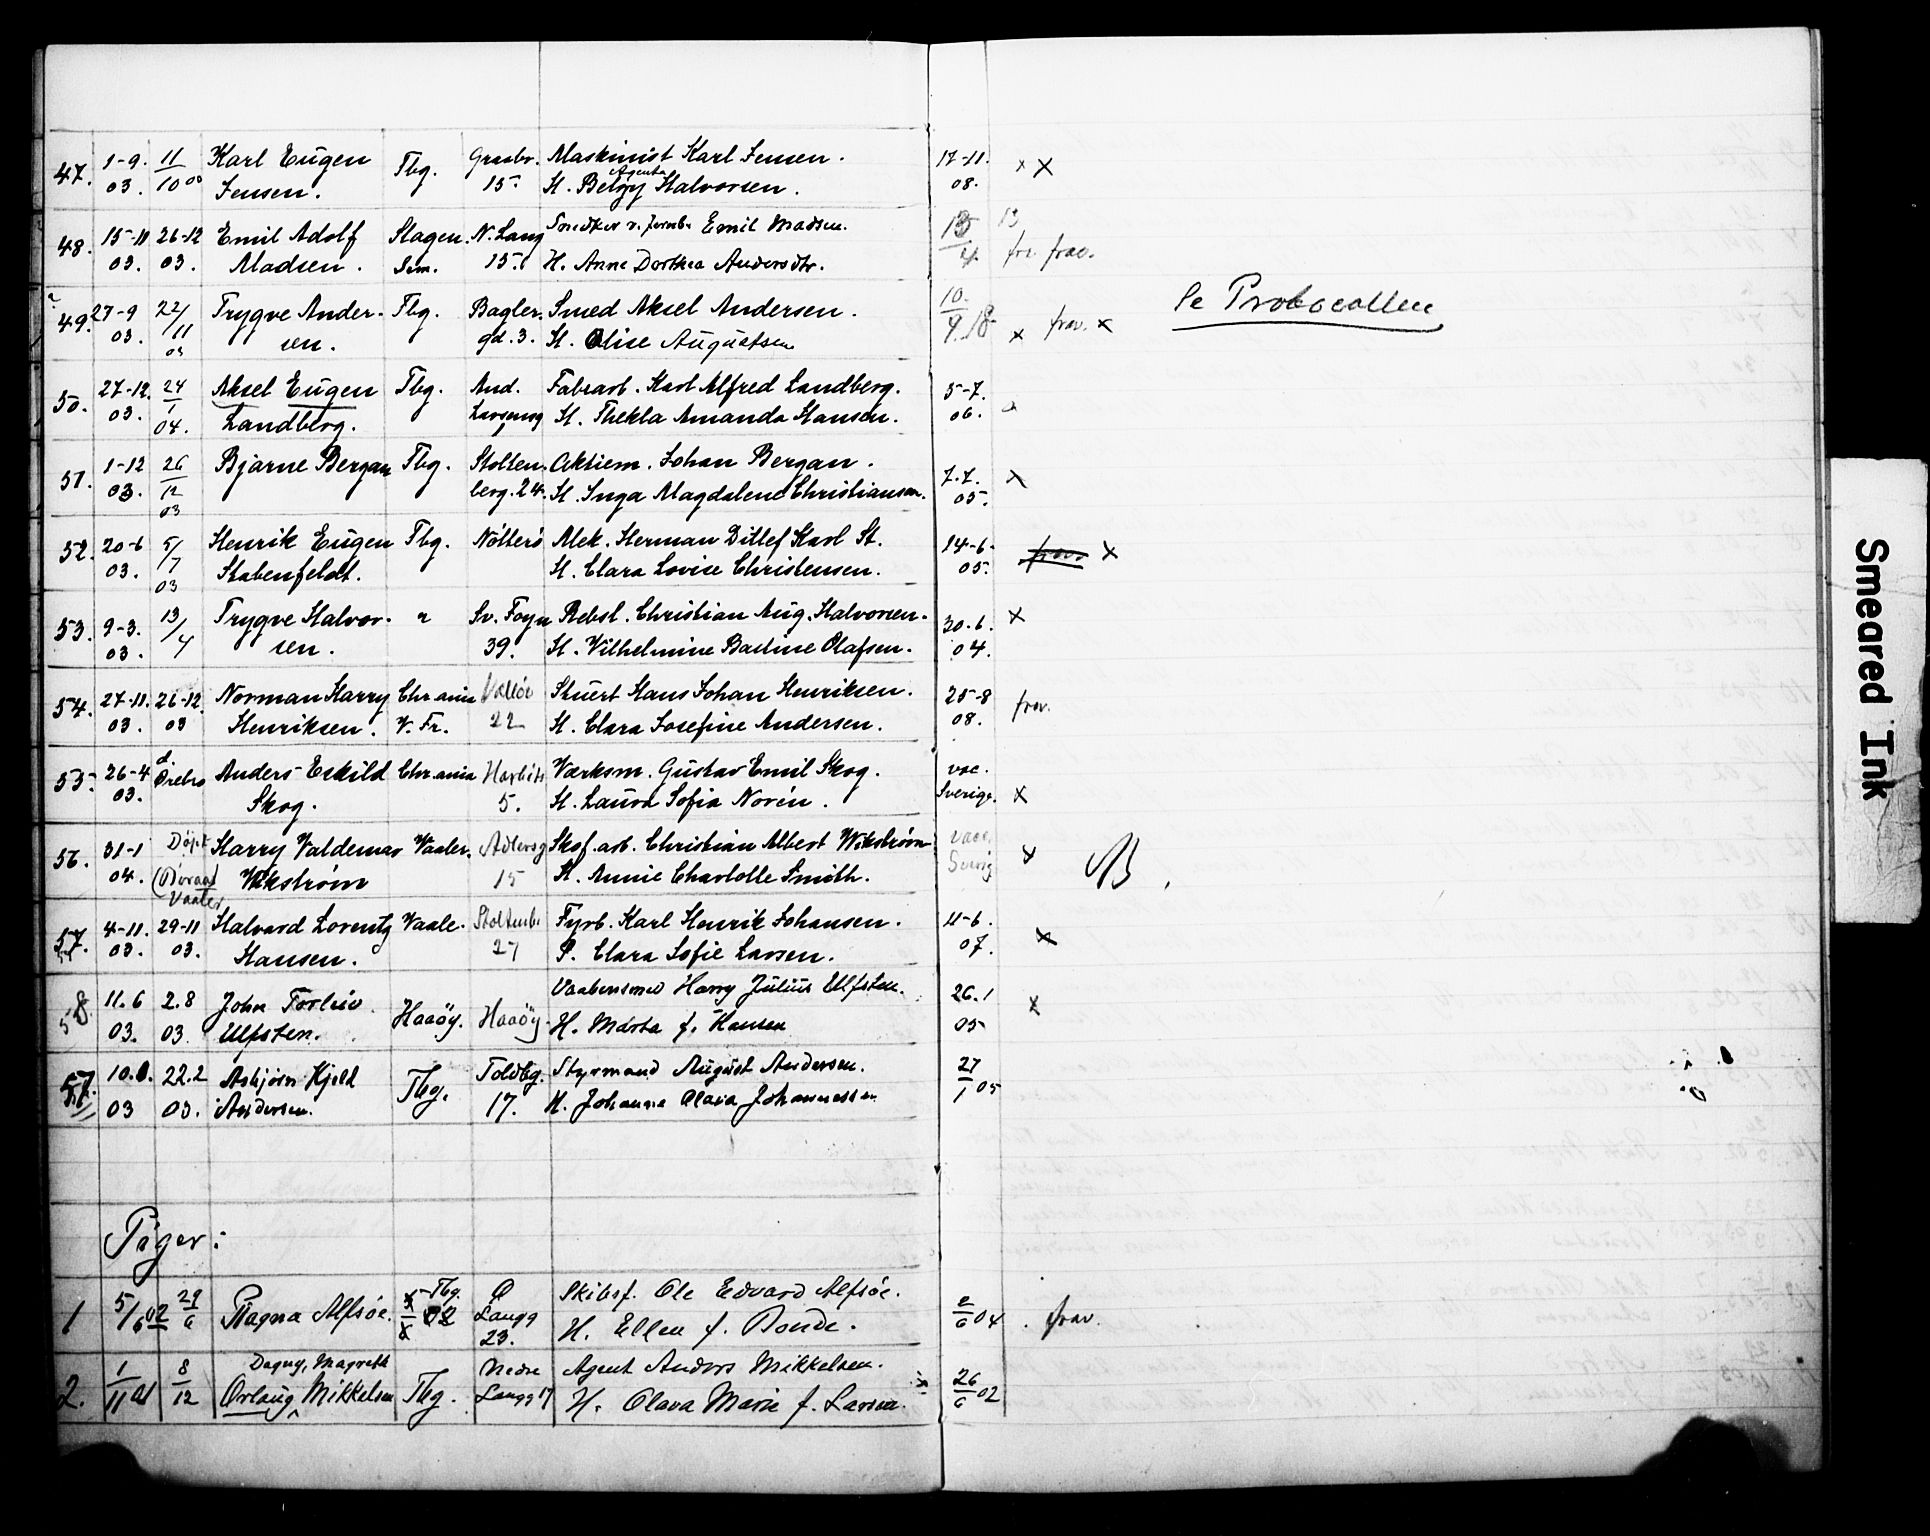 47. 1-9. 11 Karl Eugen Tbg. Grœnbr. Maskinist Karl Jensen. 17-11. x x
03. 10 03 Jensen. 15. H. Betzy Agenta Halvorsen. 08.
48. 15-11 26-12 Emil Adolf Slagen. N. Lang Snedker v. Jernb. Emil Madsen. 13
03. 03. Madsen. Sem. 15. H. Anne Dorthea Andersdtr. 4. frav.
49. 27-9 22/ Trygve Ander- Tbg. Bagler. Smed Aksel Andersen. 10. Se Protocollen
03. 11 03 sen. gd. 3. H. Olise Augustsen 9. 18 x frav. x
50. 27-12. 24 Aksel Eugen Tbg. And. Fabearb. Karl Alfred Landberg. 5-7.
03. 1 04. Landberg. Larsensg H. Thekla Amanda Hansen. 06.
51. 1-12 26 Bjarne Bergan Tbg. Stolten- Aktiem. Johan Bergan. 7.7. x
03. 12 03 berg. 24. H. Inga Magdalene Christiansen. 05.
52. 20-6 5/ Henrik Eugen Tbg. Nötterö Mek. Herman Ditlef Karl St. 14-6- frav. x
03. 7 03 Stabenfeldt. H. Clara Lovise Christensen. 05.
53. 9-3. 13/ Trygve Halvor- " Sv. Foyn Rebsl. Christian Aug. Halvorsen. 30.6. x
03. 4 sen. 39. H. Vilhelmine Pauline Olafsen. 04.
54. 27-11. 26-12. Norman Harry Chr.ania Vallö Stuert Hans Johan Henriksen. 25-8 frav.
03. 03 Henriksen. V. Fr. 22 H. Clara Josefine Andersen. 08.
55. 26-4 d. Örebro Anders Eskild Chr.ania Værksm. Gustav Emil Skog. vac.
03. Skog. 5. H. Laura Sofia Norén. Sverige. x
56. 31-1 Döpt Harry Valdemar Vaaler. Adlersg Skof. arb. Christian Albert Wikström vacc. x
04. Vaaler Wikström 15 H. Annie Charlotte Smith. Sverig
57. 4-11. 29-11 Halvard Lorentz Vaale. Stoltenb. Fyrb. Karl Henrik Johansen. 11-6. x
03. 03. Hansen. 27 P. Clara Sofie Larsen. 07.
58. 11.6 2.8 John Torleiv Haaöy. Haaöy. Vaabensmed Harry Julius Ulfsten. 26.1 x
03. 03. Ulfsten. H. Marta f. Hansen 05
57. 10. 22.2 Asbjørn Kjeld Tbg. Toldbg. Styrmand August Andersen. 27
03 03. Andersen. 17. H. Johanne Olava Johannessen 1 05
Piger:
1 5/6 02 29 6 Ragna Alfsöe. Tbg. Ø Skibsf. Ole Edvard Alfsöe. 2
02 Langg 23. H. Ellen f. Bonde. 6 04. frav.
2. 1 8 Dagny, Magreth Nedre Agent Anders Mikkelsen. 26
11 01 12 Orlaug Mikkelsen Tbg. Langg 17 H. Olava Marie f. Larsen. 6 02
Smeared Ink